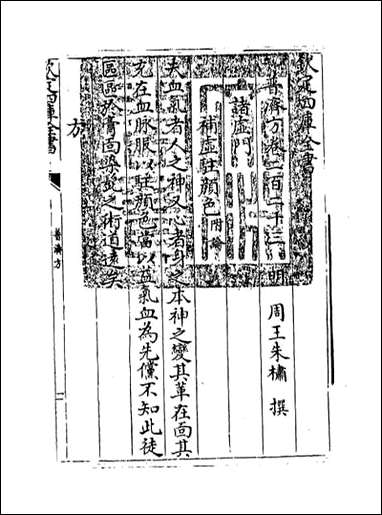 欽定四庫全書
普濟方卷二百二十三 明 周王朱橚 撰
諸虛門
補虛駐顏色附論
夫血氣者人之神又心者身之本神之變其華在面其
充在血脉服以駐顏色當以益氣血為先儻不知此徒
區區於膏面染髭之術道遠矣
方
欽定四庫全書
普濟方